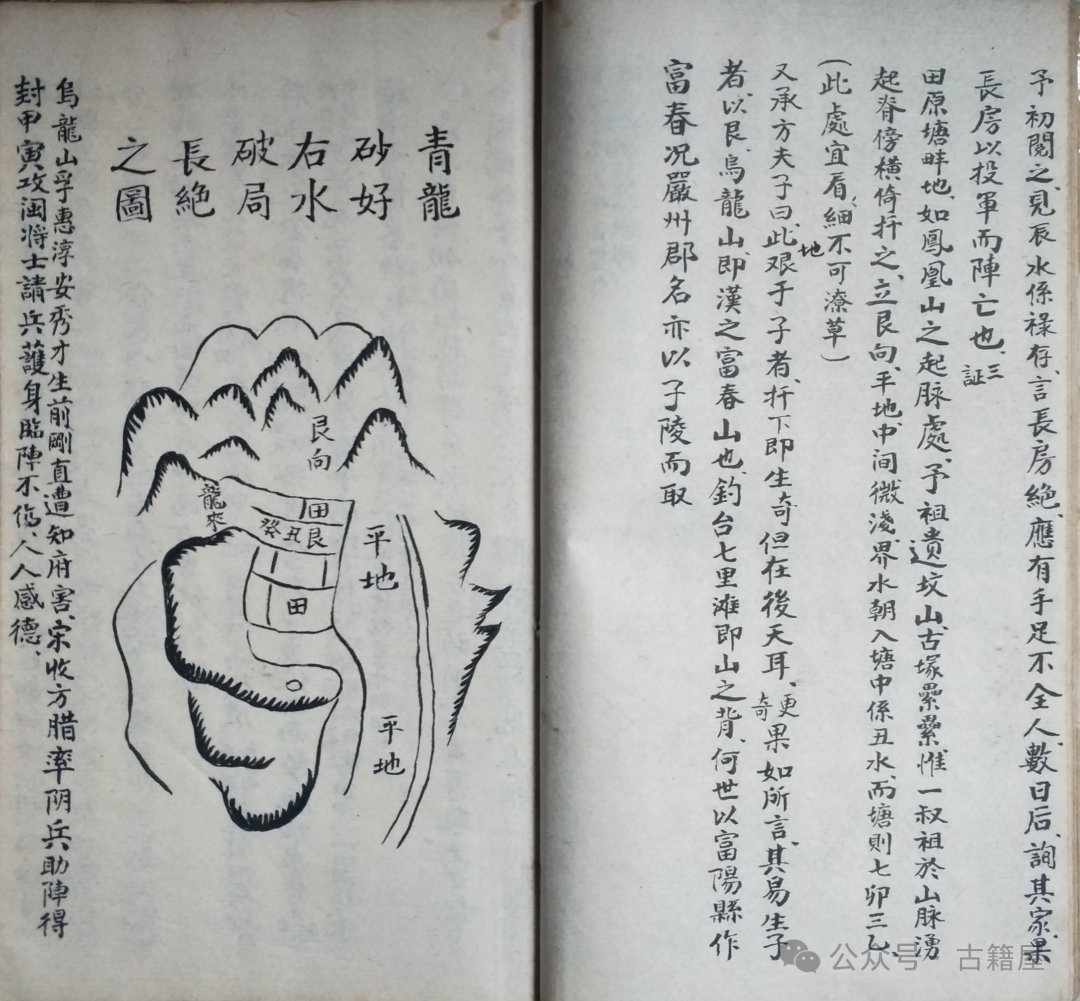 予初閱之、見辰水係祿存、言長房絶、應有手足不全人、數日后、詢其家、果
長房以投軍而陣亡也、三証
田原塘畔地、如鳳凰山之起脉處、予祖遗坟山古塚纍纍惟一叔祖於山脉湧
起脊傍橫倚扦之、立艮向、平地中、间微淺、界水朝入塘中係丑水、而塘則七卯三乙、
(此處宜看、細、不可潦草)
又承方夫子曰、此地艰于子者、扦下即生奇但在後天耳、更奇果如所言、其易生子
者、以艮、烏龍山、即漢之富春山也、釣台七里滩即山之背、何世以富陽縣作
富春況嚴州郡名亦以子陵而取
青龍
砂好
右水
破局
長絕
之圖
艮向
龍來
田
癸丑艮
平地
田
平地
烏龍山孚惠淳安秀才生前剛直遭知府害、宋收方腊率阴兵助陣得
封甲寅攻闽将士請兵護身臨陣不伤、人人感德、
公众号 古籍屋